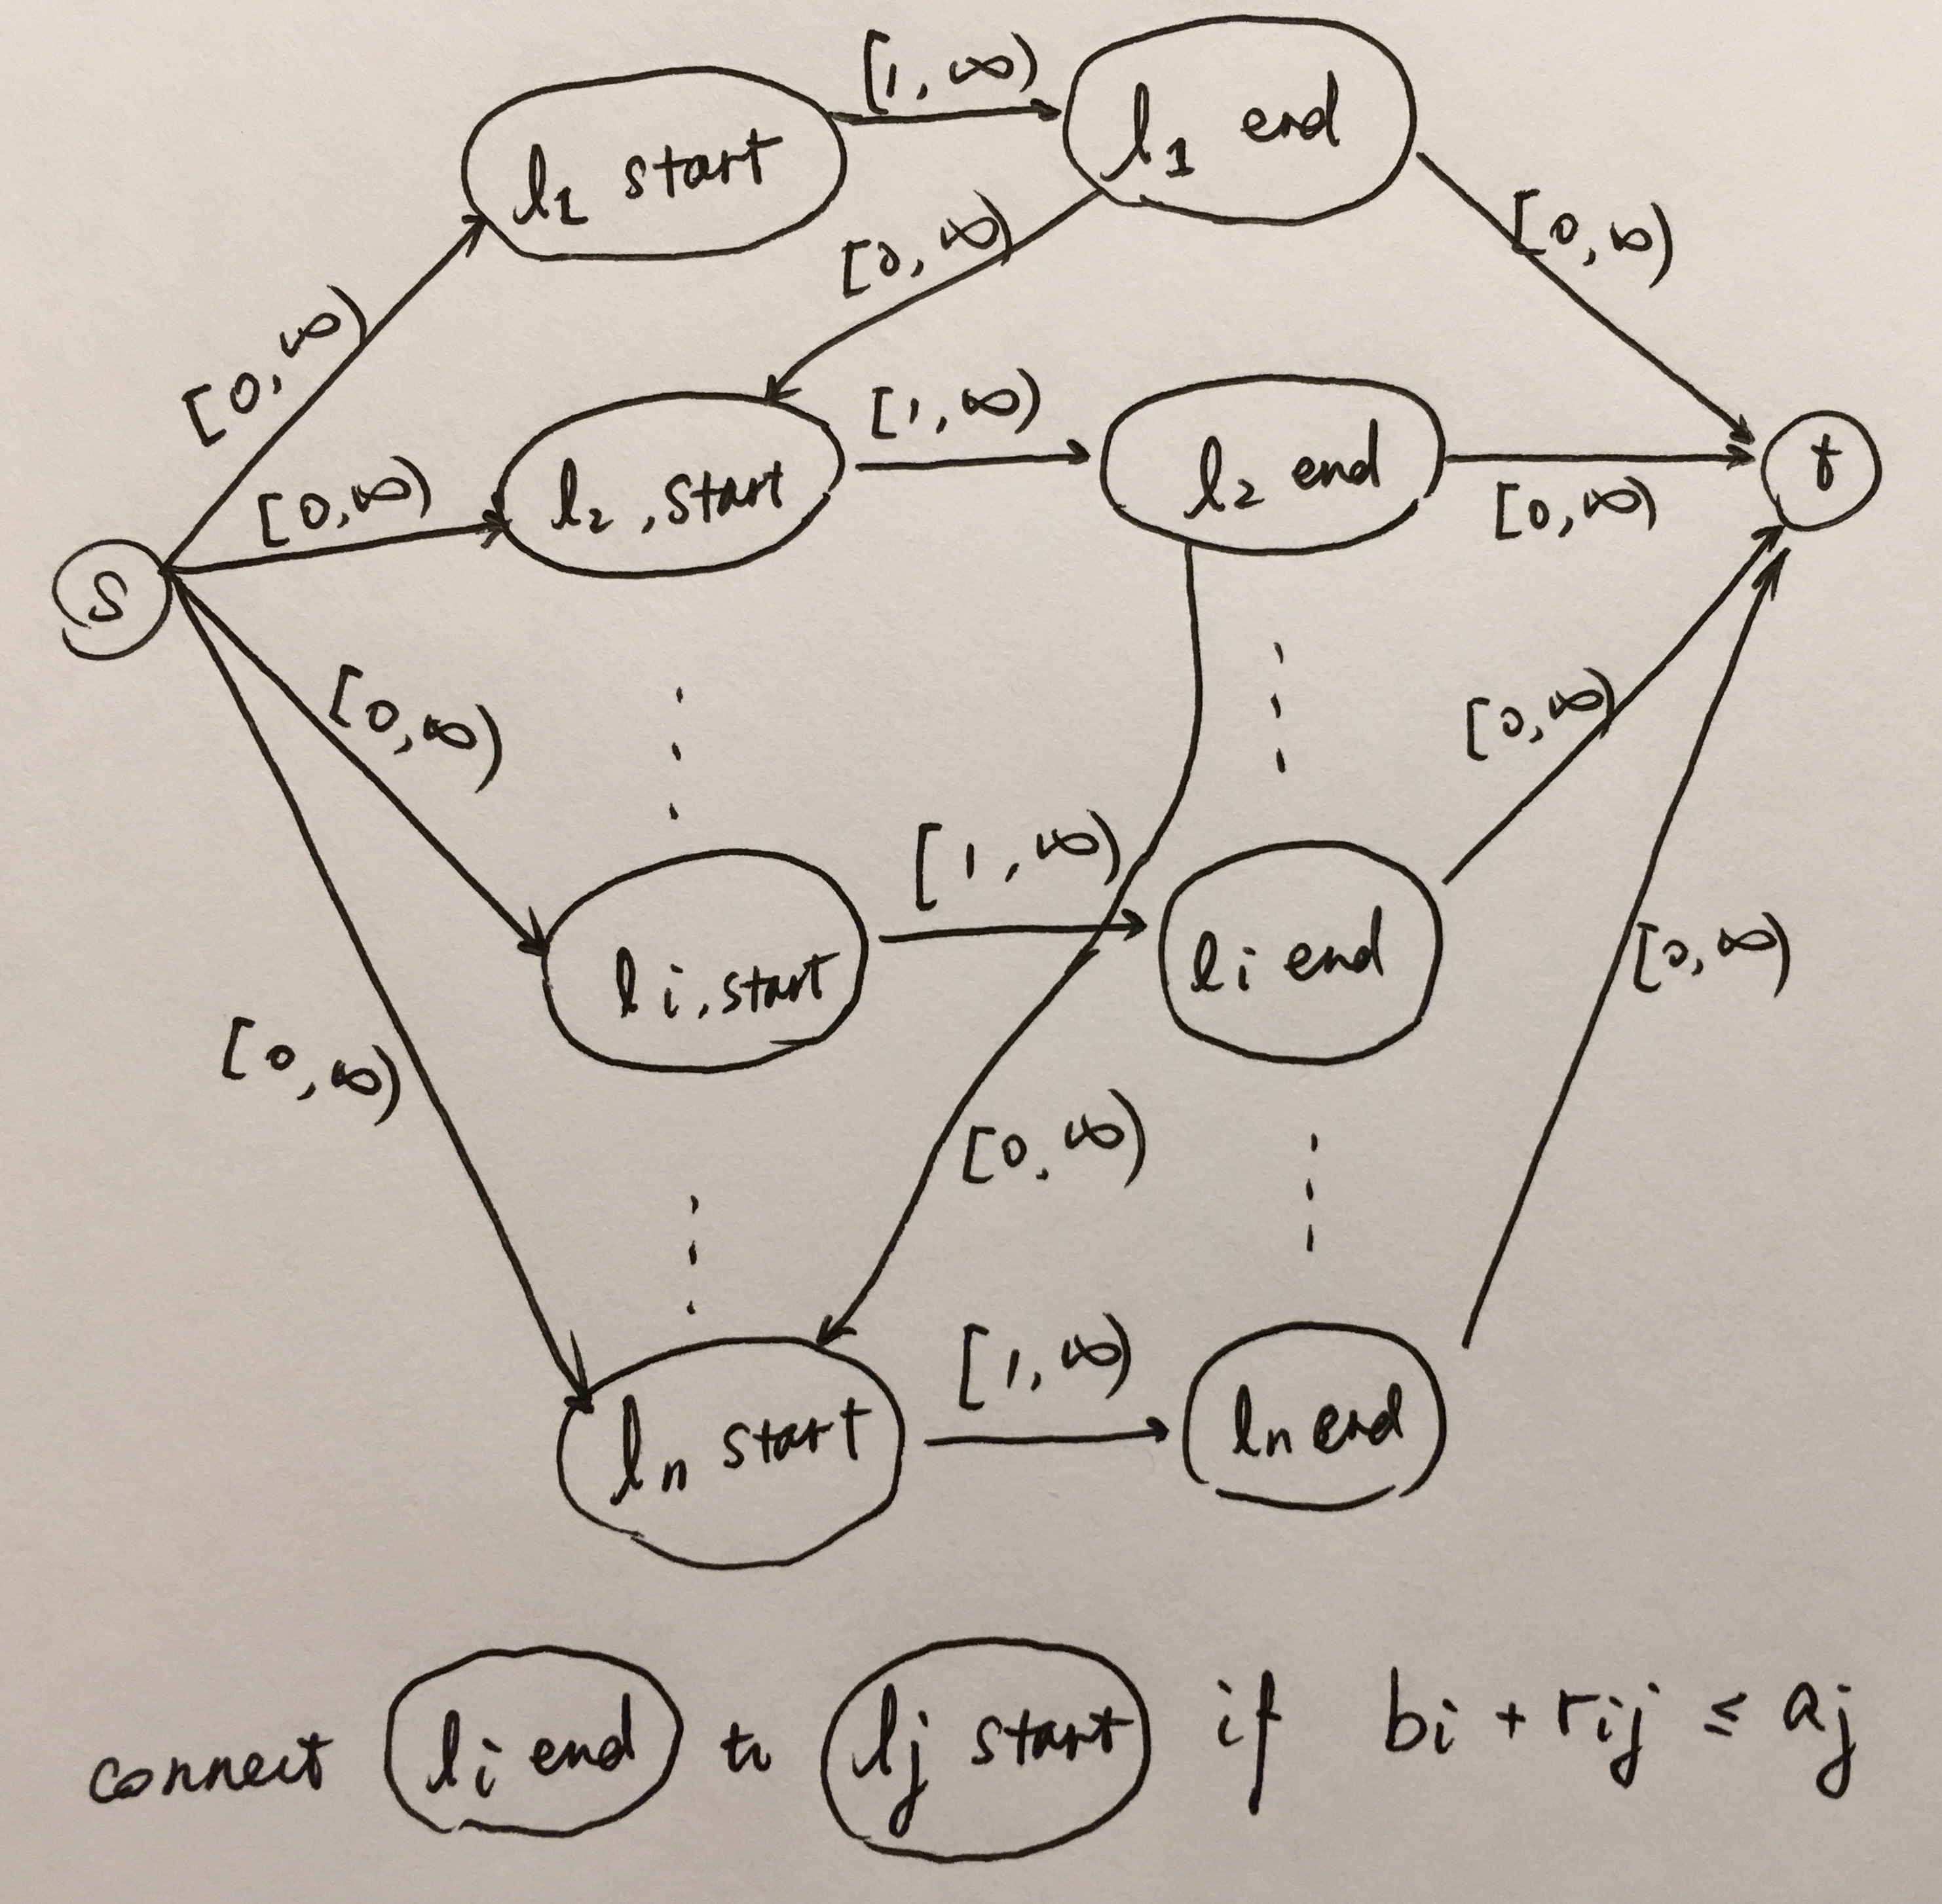 [1, ∞)
l1 start
l1 end
[0, ∞)
[0, ∞)
[0, ∞)
[1, ∞)
[0, ∞)
l2, start
l2 end
t
[0, ∞)
s
[0, ∞)
[0, ∞)
[1, ∞)
li, start
li end
[0, ∞)
[0, ∞)
[0, ∞)
[1, ∞)
ln start
ln end
connect li end to lj start if bi + rij ≤ aj